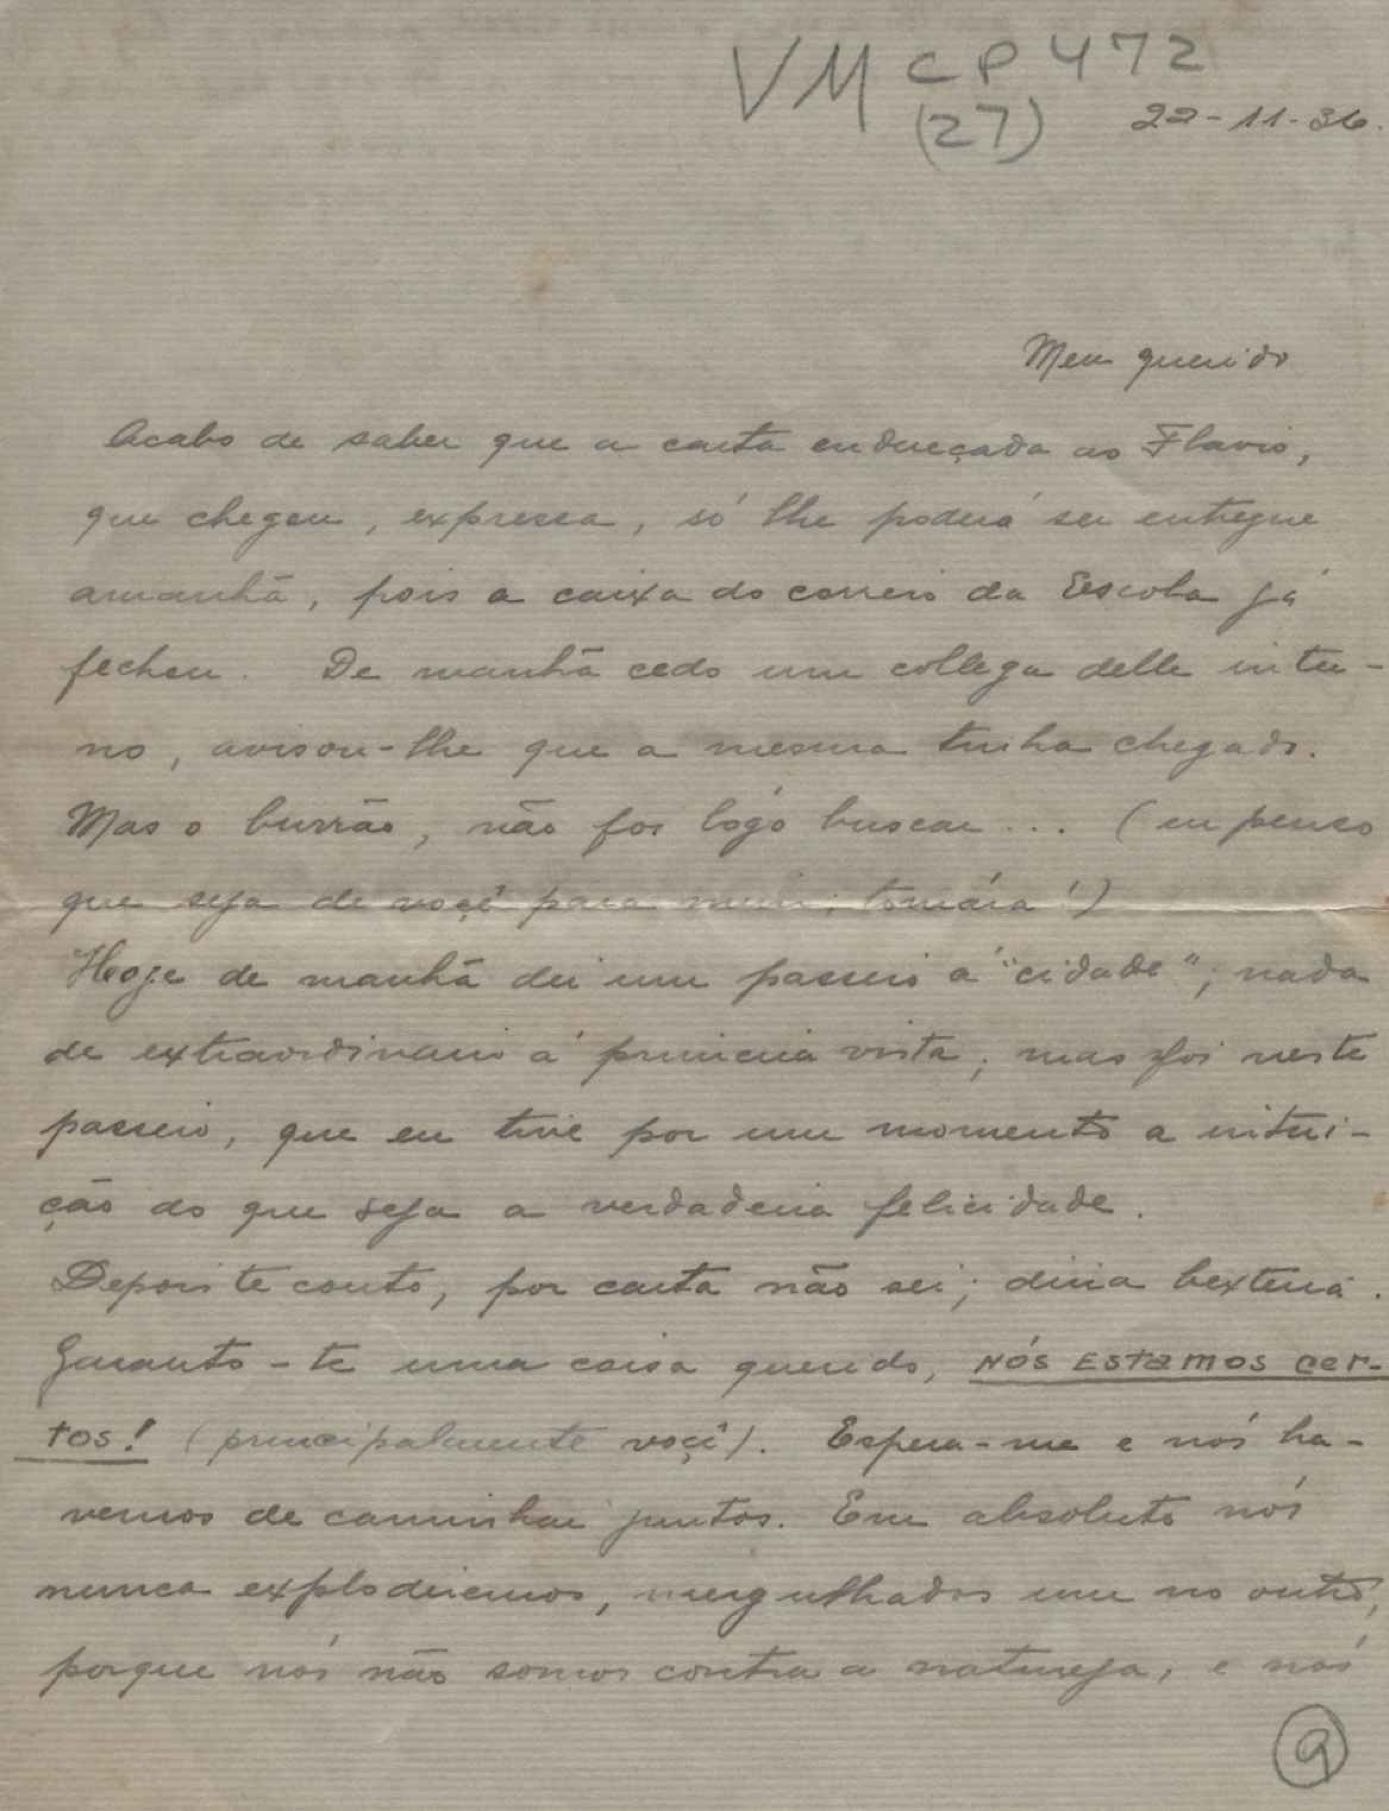 VM CP 472
(27) 22-11-36.
Meu querido
Acabo de saber que a carta endereçada ao Flavio,
que chegou, expressa, só lhe poderá ser entregue
amanhã, pois a caixa do correio da Escola já
fechou. De manhã cedo um collega delle inter-
no, avisou-lhe que a mesma tinha chegado.
Mas o burrão, não foi lógo buscar... (eu penso
que seja de voçê para mim; tomára!)
Hoje de manhã dei um passeio á "cidade", nada
de extraordinario á primeira vista; mas foi neste
passeio, que eu tive por um momento a intui-
ção do que seja a verdadeira felicidade.
Depois te conto, por carta não sei; diria besteira.
Garanto-te uma coisa querido, NÓS ESTAMOS CER-
TOS! (principalmente voçê). Espera-me e nós ha-
vemos de caminhar juntos. Em absoluto nós
nunca explodiremos, mergulhados um no outro,
porque nós não somos contra a natureza, e nós
9